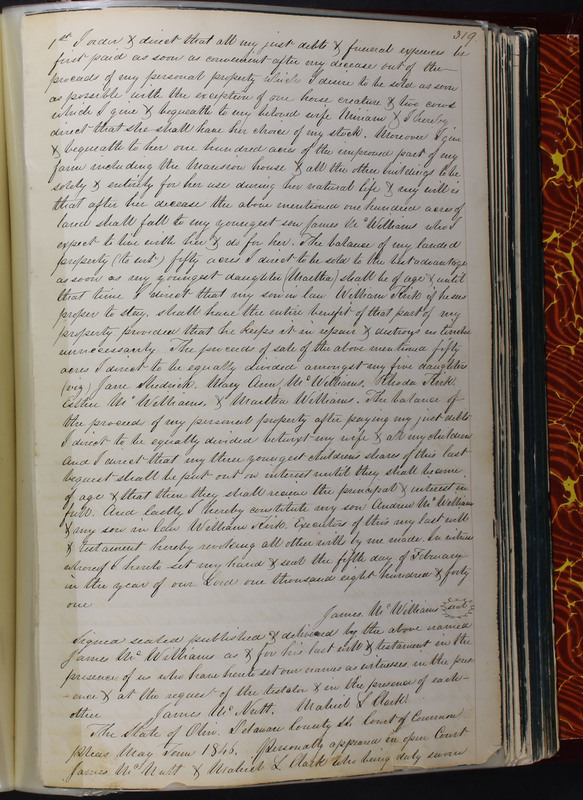 319
1st I order & direct that all my just debts & funeral expences be
first paid as soon as convenient after my decease out of the
proceeds of my personal property which I desire to be sold as soon
as possible with the exception of one horse creature & two cows
which I give & bequeathe to my beloved wife Miriam & I hereby
direct that she shall have her choice of my stock. Moreover I give
& bequeathe to her one hundred acres of the improved part of my
farm including the Mansion house & all the other buildings to be
solely & entirely for her use during her natural life & my will is
that after her decease the above mentioned one hundred acres of
land shall fall to my youngest son James McWilliams who I
expect to live with her & do for her. The balance of my landed
property (to wit) fifty acres I direct to be sold to the best advantage
as soon as my youngest daughter (Martha) shall be of age & until
that time I direct that my son in law William Kirk if he sees
proper to stay, shall have the entire benefit of that part of my
property provided that he keeps it in repair & destroys no timber
unnecessarily. The proceeds of sale of the above mentioned fifty
acres I direct to be equally divided amongst my five daughters
(viz) Jane Mary Ann McWilliams, Rhoda Kirk.
Esther McWilliams, & Martha Williams. The balance of
the proceeds of my personal property after paying my just debts
I direct to be equally divided betwixt my wife & all my children
And I direct that my three youngest childrens share of this last
bequest shall be put out on interest until they shall become
of age & that then they shall receive the principal & interest in
full. And lastly I hereby constitute my son Andrew McWilliams
& my son in law William Kirk. Executors of this my last will
& testament hereby revoking all other wills by me made. In witness
whereof I hereto set my hand & seal the fifth day of February
in the year of our Lord one thousand eight hundred & forty
one
James McWilliams seal
Signed sealed published & delivered by the above named
James McWilliams as & for his last will & testament in the
presence of us who have hereto set our names as witnesses in the pres
-ence & at the request of the testator & in the presence of each
other James McNutt. L Clark
The State of Ohio. Delaware County Ss Court of Common
pleas May Term 1845. Personally appeared in open Court
James McNutt & L. Clark who being duly sworn